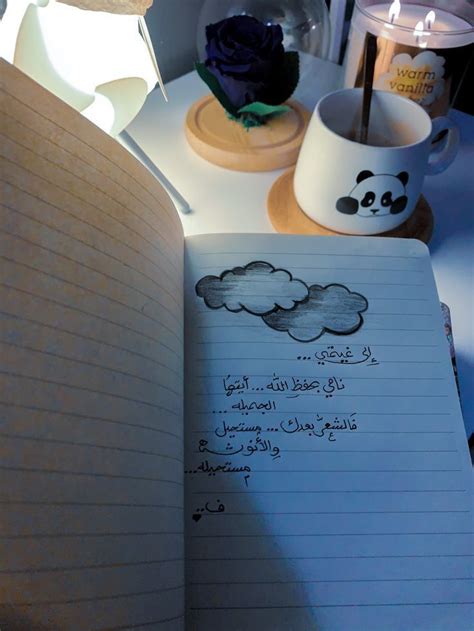 warm
vanilla
إلى غيمتي ...
نامي بحفظِ الله ... أيتها
الجميله ...
فَالشعرُ بعدك ... مستحيل
والأنوثة
مستحيله ...
ف ..